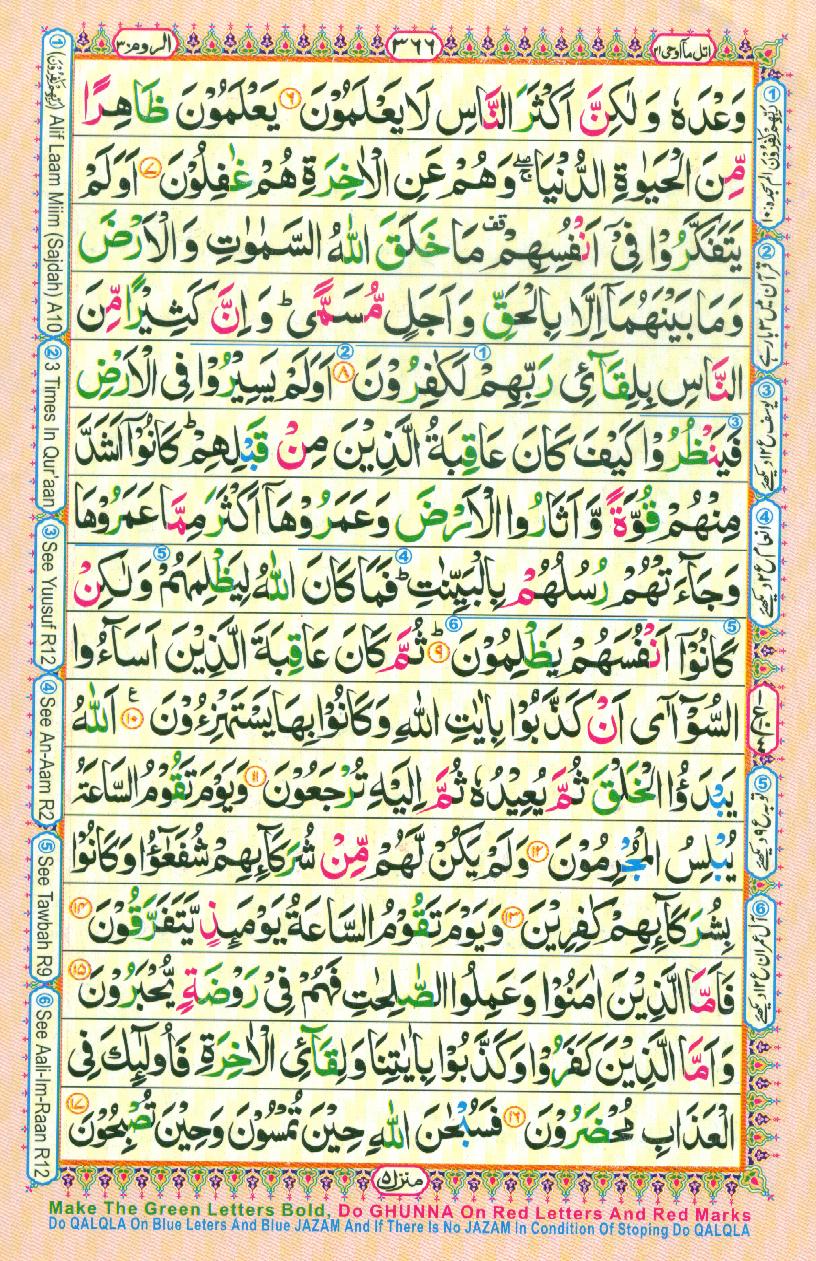 اتل مآ اوحی ۲۱
۳۶۶
الروم ۳۰
وَعْدَهٗ وَ لٰكِنَّ اَكْثَرَ النَّاسِ لَا يَعْلَمُوْنَ ۶ يَعْلَمُوْنَ ظَاهِرًا
مِّنَ الْحَيٰوةِ الدُّنْيَا ۖۚ وَهُمْ عَنِ الْاٰخِرَةِ هُمْ غٰفِلُوْنَ ۷ اَوَلَمْ
يَتَفَكَّرُوْا فِيْٓ اَنْفُسِهِمْ ۫ مَا خَلَقَ اللّٰهُ السَّمٰوٰتِ وَ الْاَرْضَ
وَمَا بَيْنَهُمَآ اِلَّا بِالْحَقِّ وَ اَجَلٍ مُّسَمًّى ؕ وَ اِنَّ كَثِيْرًا مِّنَ
النَّاسِ بِلِقَآئِ رَبِّهِمْ لَكٰفِرُوْنَ ۸ اَوَلَمْ يَسِيْرُوْا فِى الْاَرْضِ
فَيَنْظُرُوْا كَيْفَ كَانَ عَاقِبَةُ الَّذِيْنَ مِنْ قَبْلِهِمْ ؕ كَانُوْٓا اَشَدَّ
مِنْهُمْ قُوَّةً وَّ اَثَارُوا الْاَرْضَ وَعَمَرُوْهَآ اَكْثَرَ مِمَّا عَمَرُوْهَا
وَجَآءَتْهُمْ رُسُلُهُمْ بِالْبَيِّنٰتِ ؕ فَمَا كَانَ اللّٰهُ لِيَظْلِمَهُمْ وَلٰكِنْ
كَانُوْٓا اَنْفُسَهُمْ يَظْلِمُوْنَ ؕ ۹ ثُمَّ كَانَ عَاقِبَةَ الَّذِيْنَ اَسَآءُوا
السُّوْٓاٰى اَنْ كَذَّبُوْا بِاٰيٰتِ اللّٰهِ وَكَانُوْا بِهَا يَسْتَهْزِءُوْنَ ۱۰ ع اَللّٰهُ
يَبْدَؤُا الْخَلْقَ ثُمَّ يُعِيْدُهٗ ثُمَّ اِلَيْهِ تُرْجَعُوْنَ ۱۱ وَيَوْمَ تَقُوْمُ السَّاعَةُ
يُبْلِسُ الْمُجْرِمُوْنَ ۱۲ وَلَمْ يَكُنْ لَّهُمْ مِّنْ شُرَكَآئِهِمْ شُفَعٰٓؤُا وَكَانُوْا
بِشُرَكَآئِهِمْ كٰفِرِيْنَ ۱۳ وَيَوْمَ تَقُوْمُ السَّاعَةُ يَوْمَئِذٍ يَّتَفَرَّقُوْنَ ۱۴
فَاَمَّا الَّذِيْنَ اٰمَنُوْا وَعَمِلُوا الصّٰلِحٰتِ فَهُمْ فِيْ رَوْضَةٍ يُّحْبَرُوْنَ ۱۵
وَاَمَّا الَّذِيْنَ كَفَرُوْا وَكَذَّبُوْا بِاٰيٰتِنَا وَلِقَآئِ الْاٰخِرَةِ فَاُولٰٓئِكَ فِى
الْعَذَابِ مُحْضَرُوْنَ ۱۶ فَسُبْحٰنَ اللّٰهِ حِيْنَ تُمْسُوْنَ وَحِيْنَ تُصْبِحُوْنَ ۱۷
منزل ۵
② قرآن میں ۳ بار ہے
③ یوسف ع ۱۲ دیکھئے
④ انعام ع ۲ دیکھئے
⑤ توبہ ع ۹ دیکھئے
⑥ آل عمران ع ۱۲ دیکھئے
① Alif Laam Miim (Sajdah) A10
② 3 Times In Qur'aan
③ See Yuusuf R12
④ See An-Aam R2
⑤ See Tawbah R9
⑥ See Aali-Im-Raan R12
Make The Green Letters Bold, Do GHUNNA On Red Letters And Red Marks
Do QALQLA On Blue Leters And Blue JAZAM And If There Is No JAZAM In Condition Of Stoping Do QALQLA